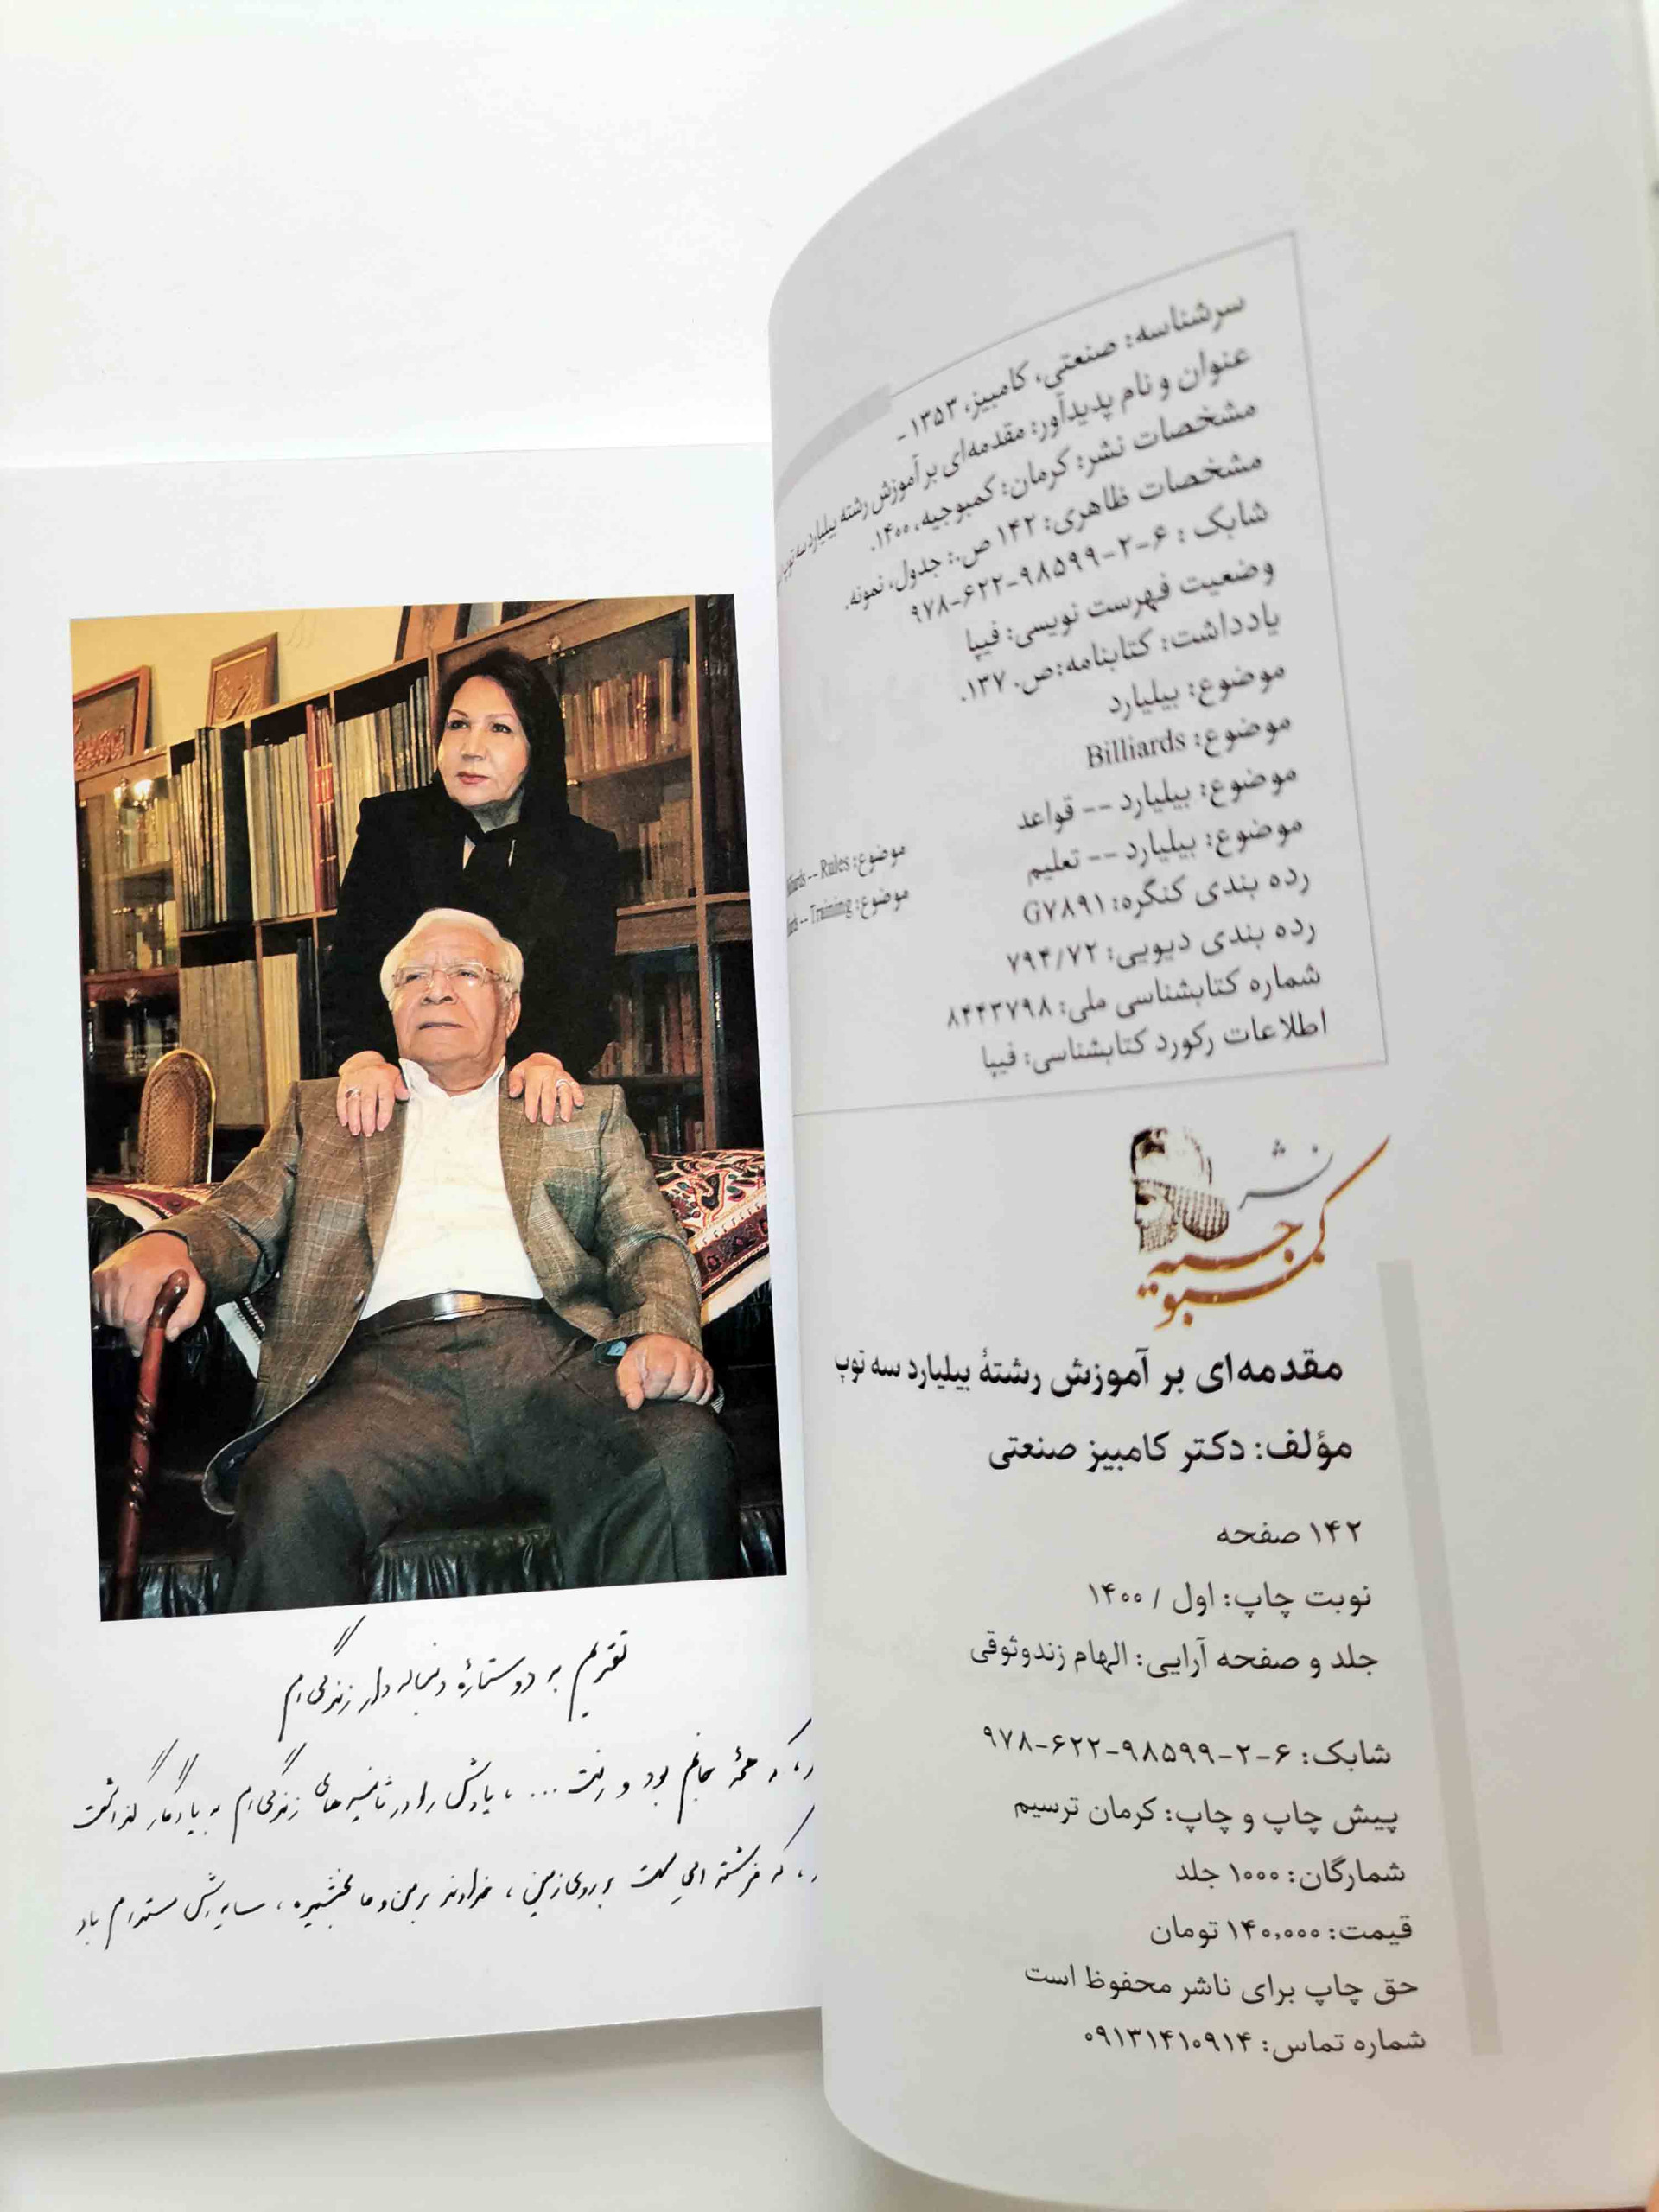 سرشناسه: صنعتی، کامبیز، ۱۳۵۳ -
عنوان و نام پدیدآور: مقدمه‌ای بر آموزش رشته بیلیارد سه توپ
مشخصات نشر: کرمان: کمبوجیه، ۱۴۰۰.
مشخصات ظاهری: ۱۴۲ ص.: جدول، نمونه.
شابک : ۶-۲-۹۸۵۹۹-۶۲۲-۹۷۸
وضعیت فهرست نویسی: فیپا
یادداشت: کتابنامه:ص. ۱۳۷.
موضوع: بیلیارد
موضوع: Billiards
موضوع: بیلیارد -- قواعد
موضوع: Billiards -- Rules
موضوع: بیلیارد -- تعلیم
موضوع: -- Training
رده بندی کنگره: G۷۸۹۱
رده بندی دیویی: ۷۹۴/۷۲
شماره کتابشناسی ملی: ۸۴۴۳۷۹۸
اطلاعات رکورد کتابشناسی: فیپا
نشر
کمبوجیه
مقدمه‌ای بر آموزش رشتهٔ بیلیارد سه توپ
مؤلف: دکتر کامبیز صنعتی
۱۴۲ صفحه
نوبت چاپ: اول / ۱۴۰۰
جلد و صفحه آرایی: الهام زندوثوقی
شابک: ۶-۲-۹۸۵۹۹-۶۲۲-۹۷۸
پیش چاپ و چاپ: کرمان ترسیم
شمارگان: ۱۰۰۰ جلد
قیمت: ۱۴۰,۰۰۰ تومان
حق چاپ برای ناشر محفوظ است
شماره تماس: ۰۹۱۳۱۴۱۰۹۱۴
تقدیم به دو ستارهٔ دنباله دار زندگی ام
که همهٔ جانم بود و رفت ... ، یادش را در ثانیه های زندگی ام به یادگار گذاشت
، که فرشته ای ست بر روی زمین ، خداوند بر من و ما بخشیده ، سایه اش مستدام باد